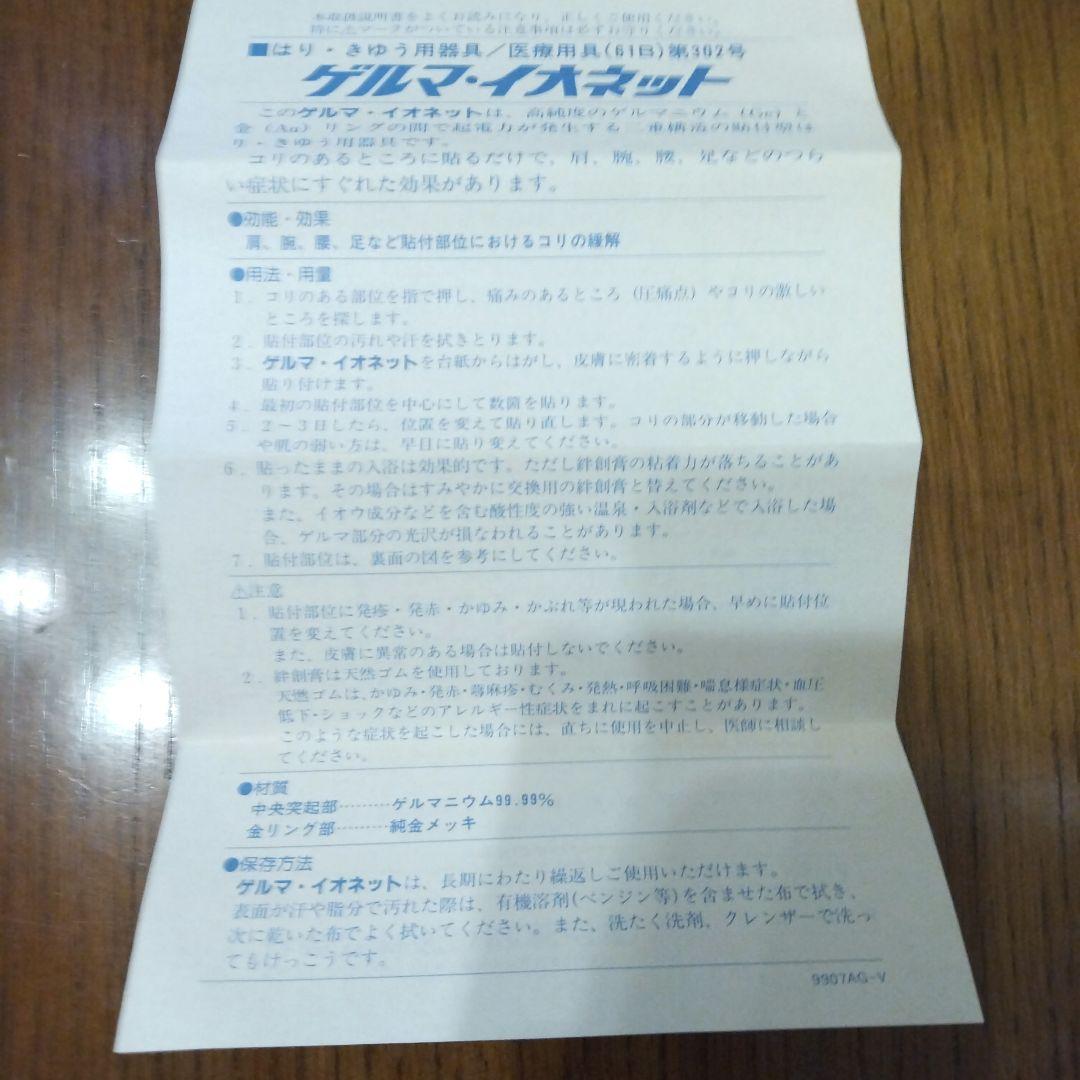 本取扱説明書をよくお読みになり、正しくご使用ください。
特に⚠マークがついている注意事項は必ずお守りください。
■はり・きゆう用器具／医療用具(61B)第362号
ゲルマ・イオネット
このゲルマ・イオネットは、高純度のゲルマニウム（Ge）と
金（Au）リングの間で起電力が発生する二重構造の貼付型は
り・きゆう用器具です。
コリのあるところに貼るだけで、肩、腕、腰、足などのつら
い症状にすぐれた効果があります。
●効能・効果
肩、腕、腰、足など貼付部位におけるコリの緩解
●用法・用量
1．コリのある部位を指で押し、痛みのあるところ（圧痛点）やコリの激しい
ところを探します。
2．貼付部位の汚れや汗を拭きとります。
3．ゲルマ・イオネットを台紙からはがし、皮膚に密着するように押しながら
貼り付けます。
4．最初の貼付部位を中心にして数箇を貼ります。
5．2～3日したら、位置を変えて貼り直します。コリの部分が移動した場合
や肌の弱い方は、早目に貼り変えてください。
6．貼ったままの入浴は効果的です。ただし絆創膏の粘着力が落ちることがあ
ります。その場合はすみやかに交換用の絆創膏と替えてください。
また、イオウ成分などを含む酸性度の強い温泉・入浴剤などで入浴した場
合、ゲルマ部分の光沢が損なわれることがあります。
7．貼付部位は、裏面の図を参考にしてください。
⚠注意
1．貼付部位に発疹・発赤・かゆみ・かぶれ等が現われた場合、早めに貼付位
置を変えてください。
また、皮膚に異常のある場合は貼付しないでください。
2．絆創膏は天然ゴムを使用しております。
天然ゴムは、かゆみ・発赤・蕁麻疹・むくみ・発熱・呼吸困難・喘息様症状・血圧
低下・ショックなどのアレルギー性症状をまれに起こすことがあります。
このような症状を起こした場合には、直ちに使用を中止し、医師に相談し
てください。
●材質
中央突起部………ゲルマニウム99.99％
金リング部………純金メッキ
●保存方法
ゲルマ・イオネットは、長期にわたり繰返しご使用いただけます。
表面が汗や脂分で汚れた際は、有機溶剤(ベンジン等)を含ませた布で拭き、
次に乾いた布でよく拭いてください。また、洗たく洗剤、クレンザーで洗っ
てもけっこうです。
9907AG-V